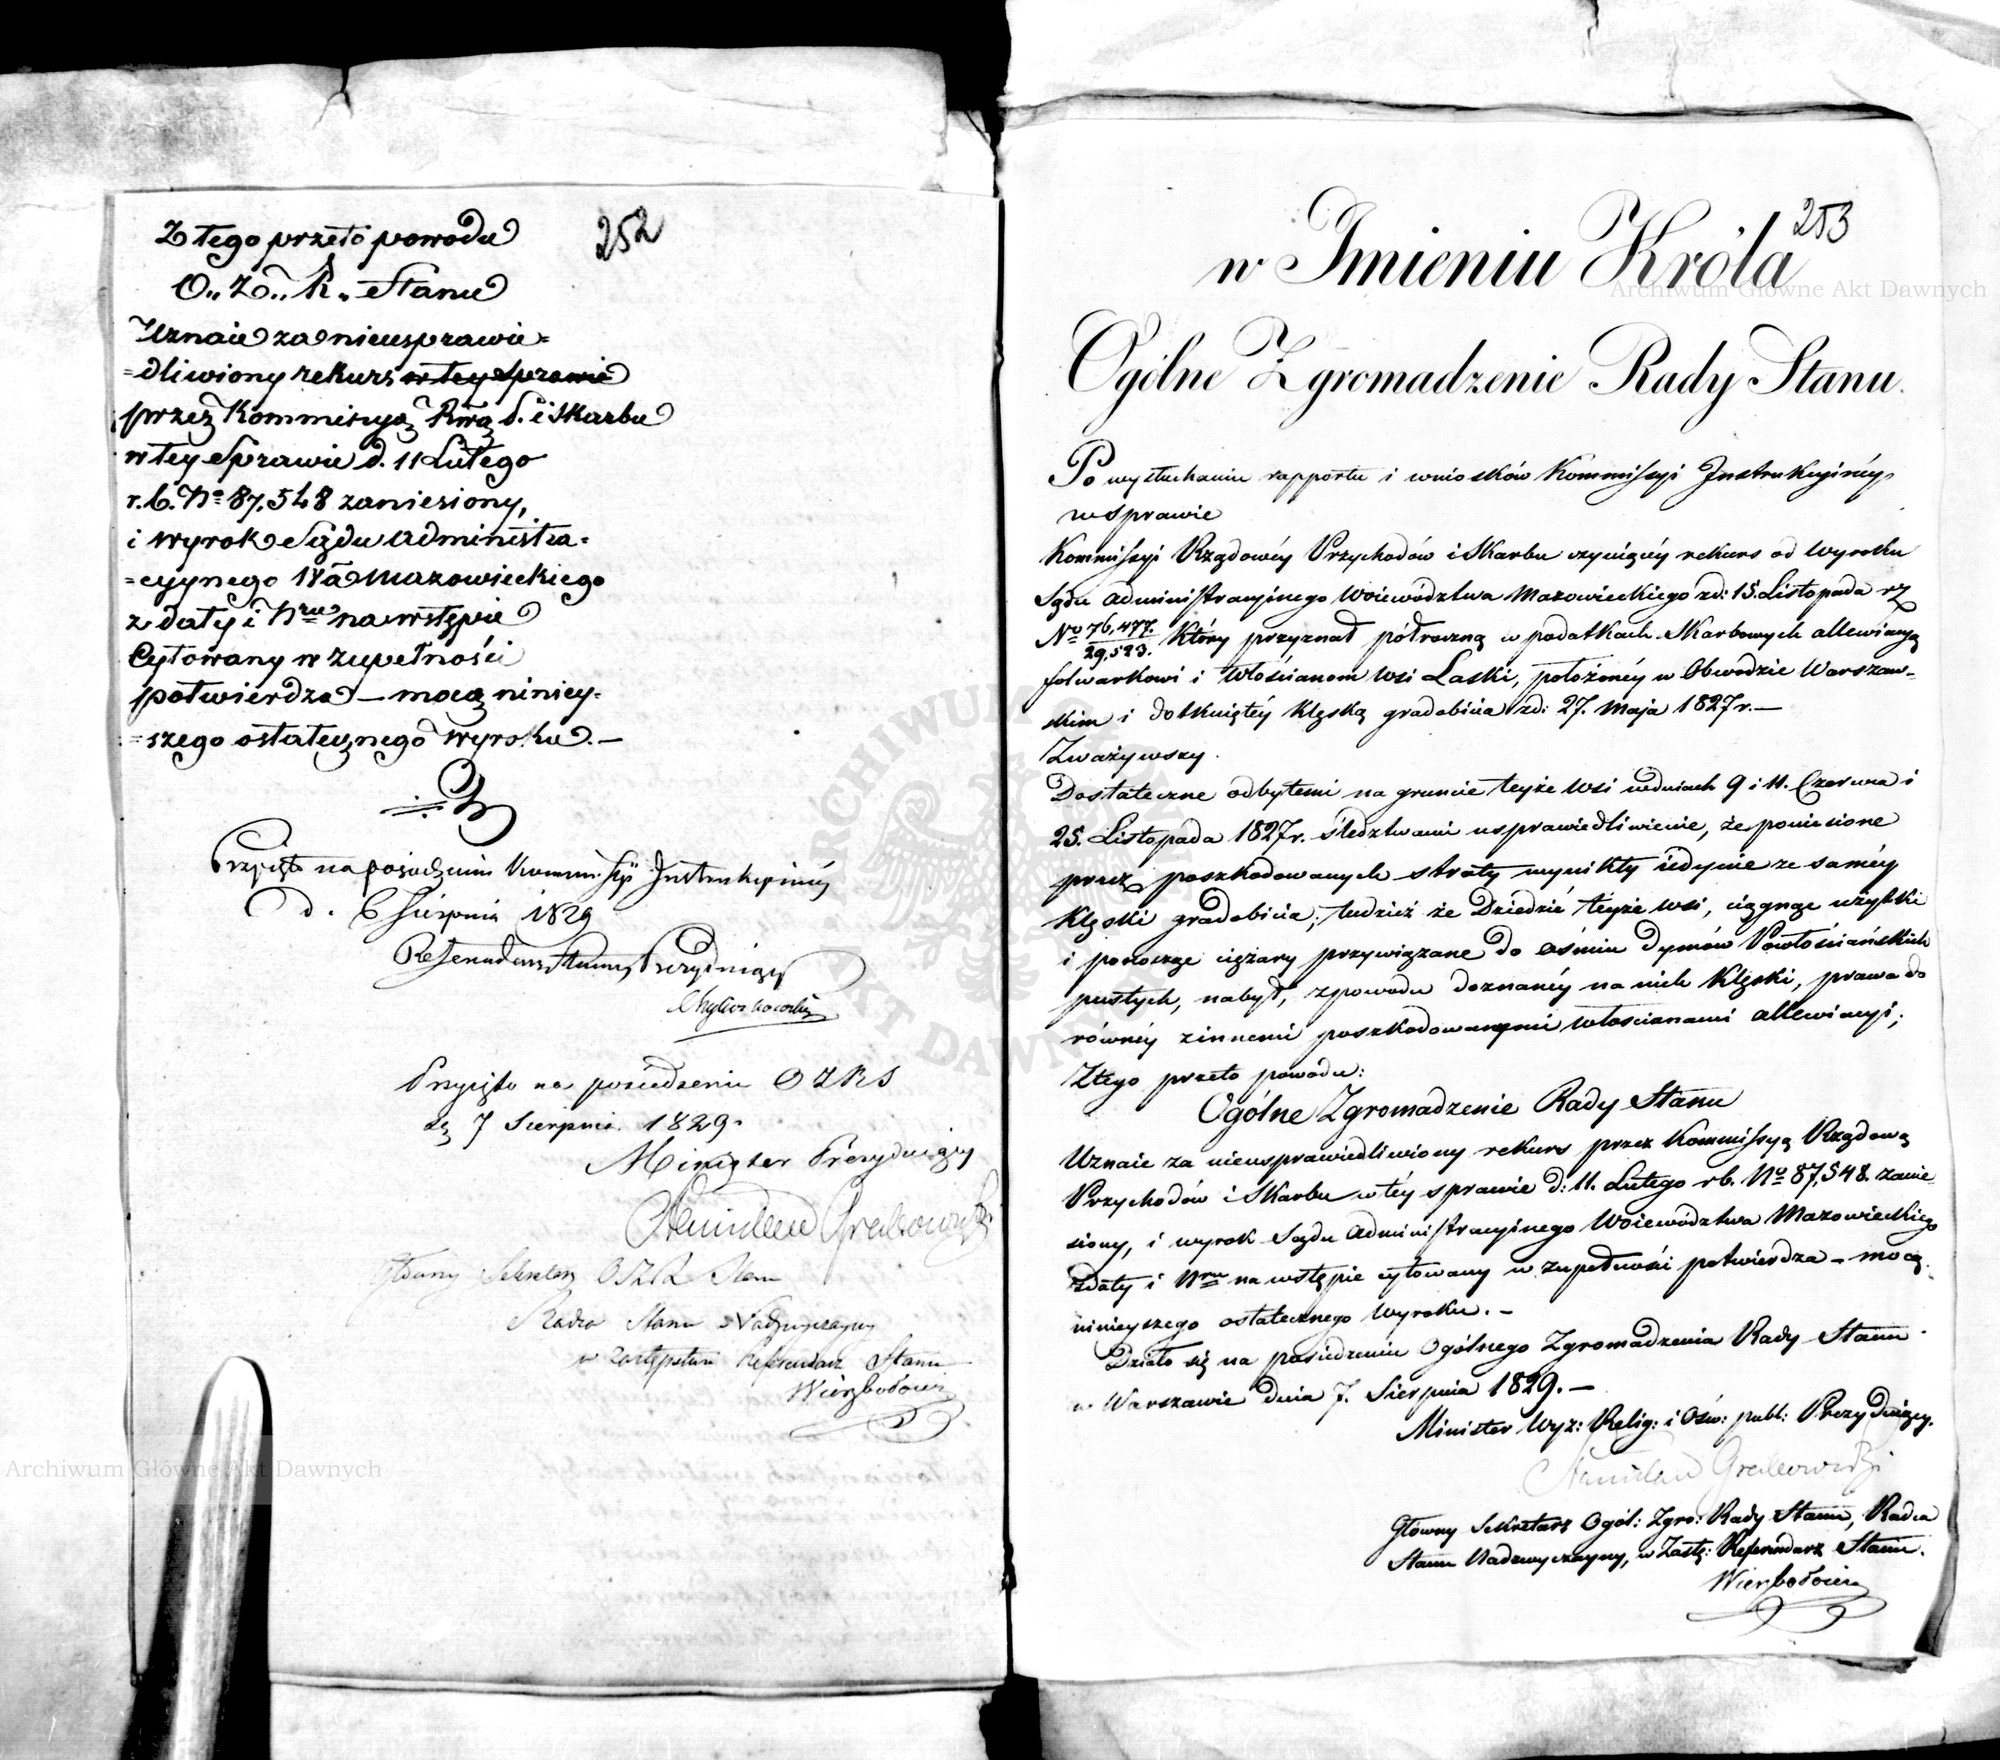 252
Z tego przeto powodu
O. Z. R. Stanu
Uznaie za nieusprawie=
=dliwiony rekurs w tey sprawie
przez Kommissyą Rwą P. i Skarbu
w tey Sprawie d. 11 Lutego
r. b. No 87,548 zaniesiony,
i wyrok Sądu Administra=
=cyynego Wa Mazowieckiego
z daty i Nru na wstępie
Cytowany w zupełności
potwierdza – mocą niniey=
=szego ostatecznego wyroku. –
Przyjęto na posiedzeniu Kommissyi Instrukcyinéy
d. 6 Sierpnia 1829
Referendarz Stanu Prezyduiący
Przyjęto na posiedzeniu OZRS
dn 7 Sierpnia 1829.
Minister Prezyduiący
Stanisław Grabowski
Główny Sekretarz OZR Stanu
Radca Stanu Nadzwyczayny
w zastępstwie Referendarz Stanu
Wierzbołowicz
253
w Imieniu Króla
Ogólne Zgromadzenie Rady Stanu.
Po wysłuchaniu rapportu i wniosków Kommissyi Instrukcyinéy
w sprawie
Kommissyi Rządowéy Przychodów i Skarbu czyniącéy rekurs od wyroku
Sądu Administracyinego Woiewództwa Mazowieckiego zd: 15. Listopada rz
No 76,477./29,523. który przyznał półroczną w podatkach Skarbowych allewiacyą
folwarkowi i włościanom wsi Laski, położonéy w Obwodzie Warszaw-
skim i dotkniętéy klęską gradobicia zd: 27. Maja 1827 r. –
Zważywszy.
Dostateczne odbytemi na gruncie teyże wsi w dniach 9 i 11. Czerwca i
25. Listopada 1827 r. śledztwami usprawiedliwienie, że poniesione
przez poszkodowanych straty wynikły iedynie ze saméy
klęski gradobicia; tudzież że Dziedzic teyże wsi, ciągnąc użytki
i ponosząc ciężary przywiązane do ośmiu dymów Powłościańskich
pustych, nabył, z powodu doznanéy na nich klęski, prawa do
równéy z innemi poszkodowanymi włościanami allewiacyi;
Z tego przeto powodu:
Ogólne Zgromadzenie Rady Stanu
Uznaie za nieusprawiedliwiony rekurs przez Kommissyą Rządową
Przychodów i Skarbu w téy sprawie d: 11. Lutego rb. No 87,548. zanie-
siony, i wyrok Sądu Administracyinego Woiewództwa Mazowieckiego
z daty i Nru na wstępie cytowany w zupełności potwierdza – mocą
ninieyszego ostatecznego wyroku. –
Działo się na posiedzeniu Ogólnego Zgromadzenia Rady Stanu
w Warszawie dnia 7. Sierpnia 1829. –
Minister Wyz: Relig: i Ośw: publ: Prezyduiący.
Stanisław Grabowski
Główny Sekretarz Ogól: Zgro: Rady Stanu, Radca
Stanu Nadzwyczayny, w Zastę: Referendarz Stanu.
Wierzbołowicz
Archiwum Główne Akt Dawnych
Archiwum Główne Akt Dawnych
ARCHIWUM GŁÓWNE AKT DAWNYCH